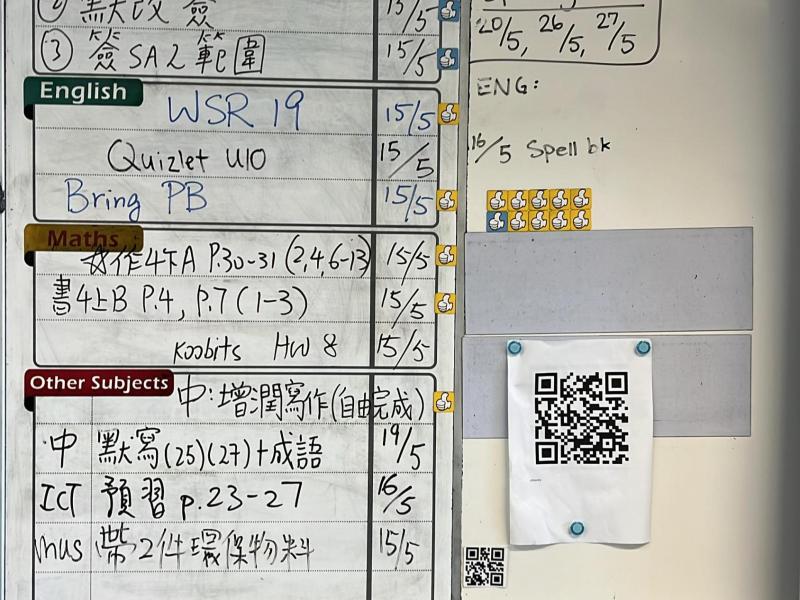 ② 默改 簽 15/5
③ 簽 SA2 範圍 15/5
English
WSR 19 15/5
Quizlet U10 15/5
Bring PB 15/5
Maths
作4下A P.30-31 (2,4,6-13) 15/5
書4上B P.4, P.7 (1-3) 15/5
Koobits HW 8 15/5
Other Subjects
中:增潤寫作(自由完成)
中 默寫(25)(27)+成語 19/5
ICT 預習 p.23-27 16/5
Mus 帶2件環保物料 15/5
20/5, 26/5, 27/5
ENG:
16/5 Spell bk